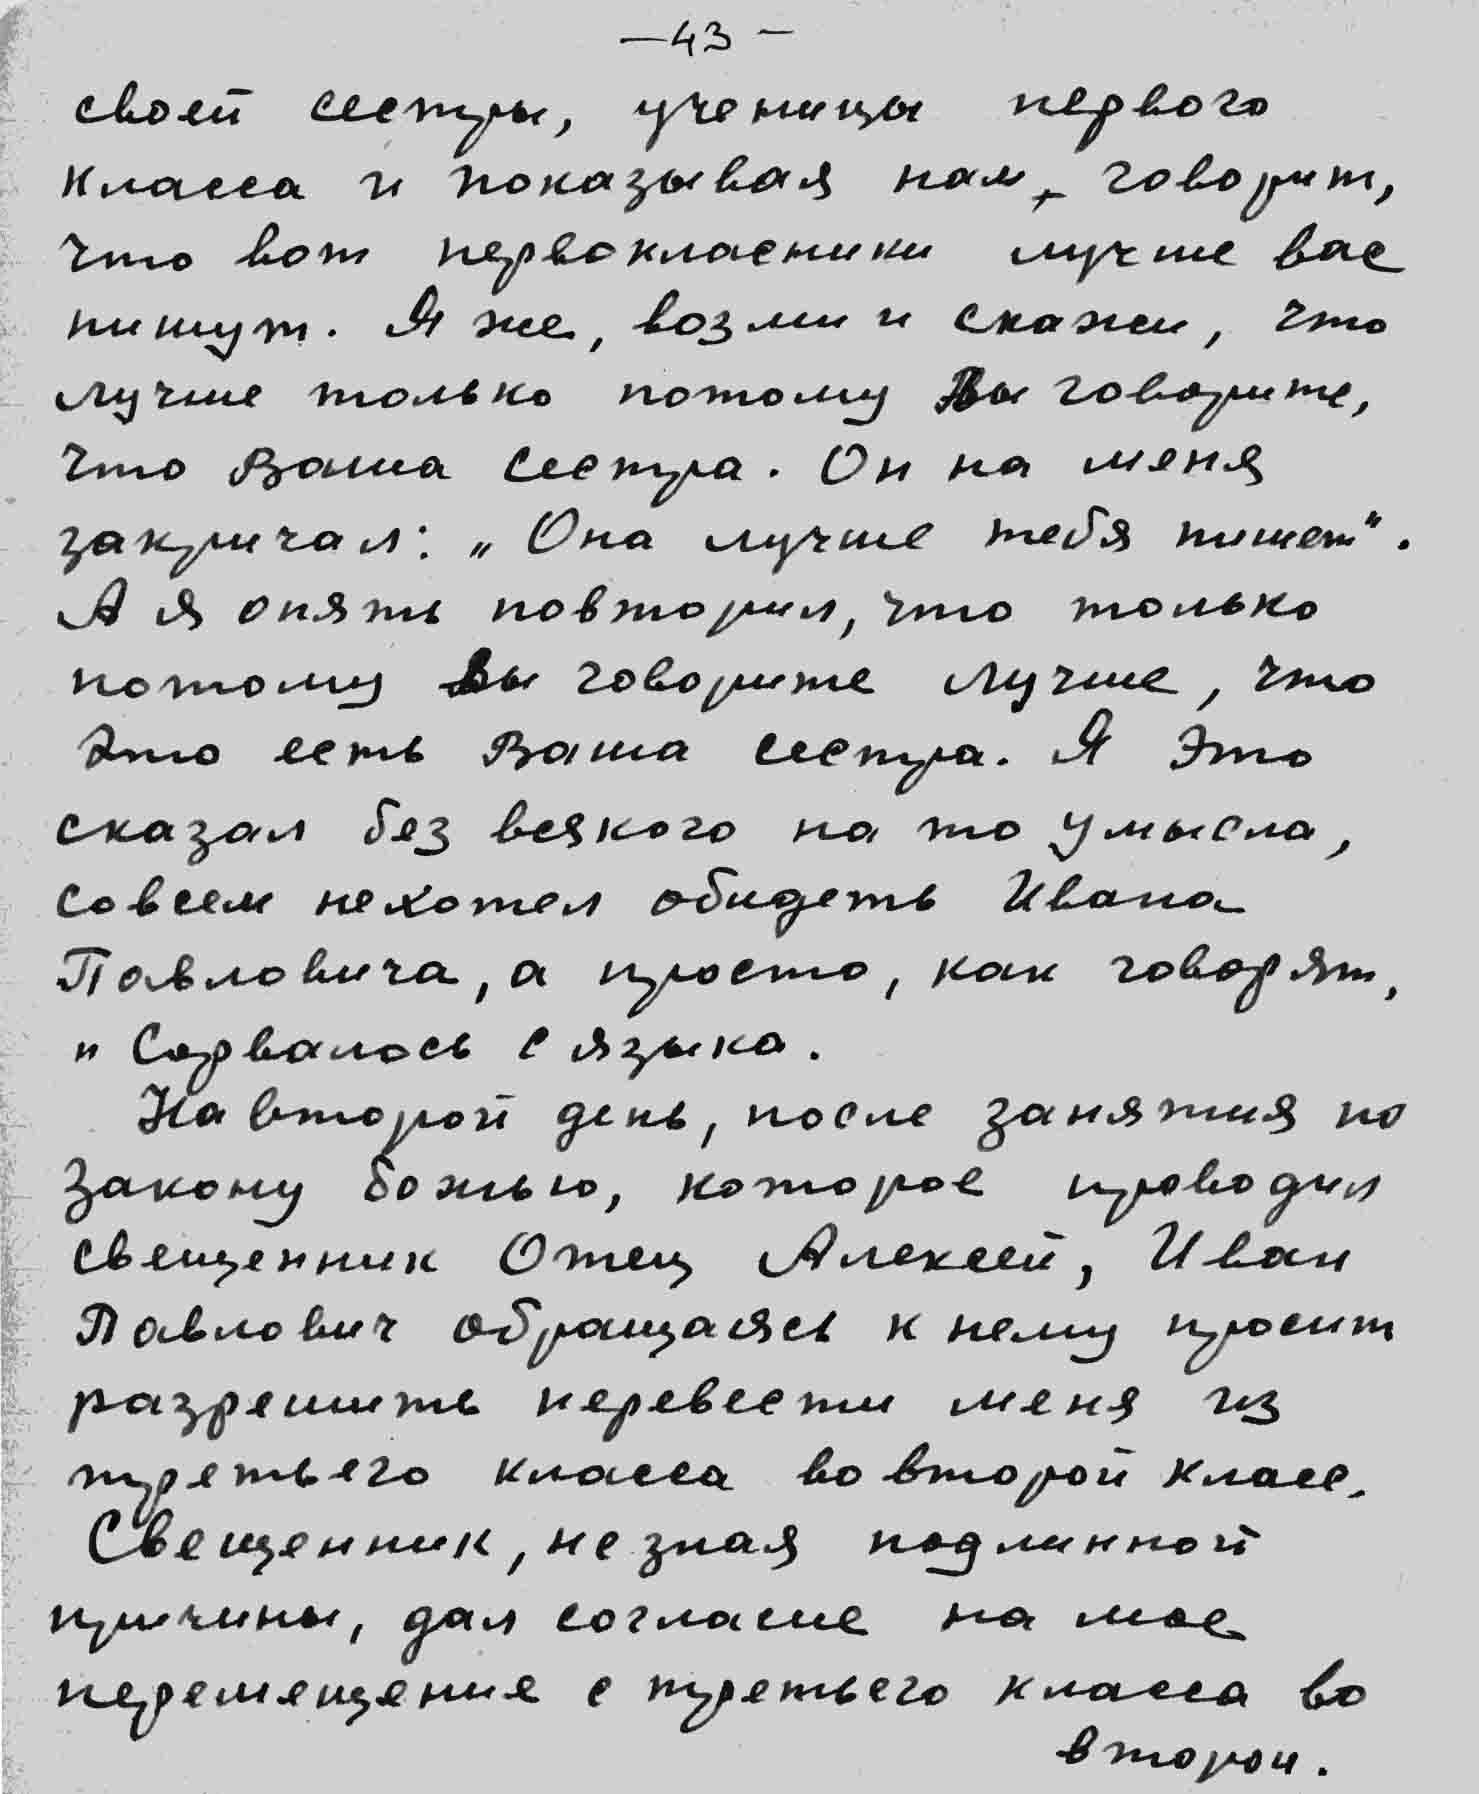 — 43 —
своей сестры, ученицы первого
класса и показывая нам, говорит,
что вот первокласники лучше вас
пишут. Я же, возми и скажи, что
лучше только потому Вы говорите,
что Ваша сестра. Он на меня
закричал: „Она лучше тебя пишет".
А я опять повторил, что только
потому Вы говорите лучше, что
это есть Ваша сестра. Я это
сказал без всякого на то умысла,
совсем нехотел обидеть Ивана
Павловича, а просто, как говорят,
„Сорвалось с языка.
На второй день, после занятия по
Закону божью, которое проводил
свещенник Отец Алексей, Иван
Павлович обращаясь к нему просит
разрешить перевести меня из
третьего класса во второй класс.
Свещенник, не зная подлинной
причины, дал согласие на мое
перемещение с третьего класса во
второй.